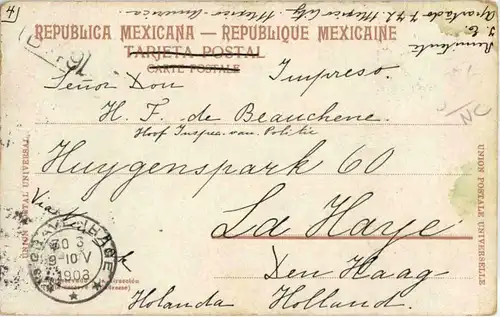 4)
Remitente
Apartado Mexico City Mexico-America.
REPUBLICA MEXICANA — REPUBLIQUE MEXICAINE
TARJETA POSTAL
CARTE POSTALE
Señor Don Impreso.
H. F. de Beauchene.
Hoof Inspec. van Politie
Huygenspark 60
UNION POSTAL UNIVERSAL.
UNION POSTALE UNIVERSELLE
Via
La Haye
Den Haag
Holanda Holland.
'S GRAVENHAGE
9-10 V
1903